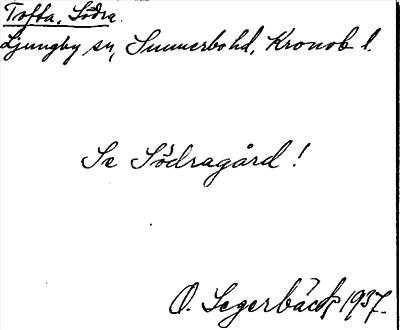 Tofta, Södra.
Ljungby sn, Sunnerbo hd, Kronob l.
Se Södragård!
O. Segerbäck 1937.